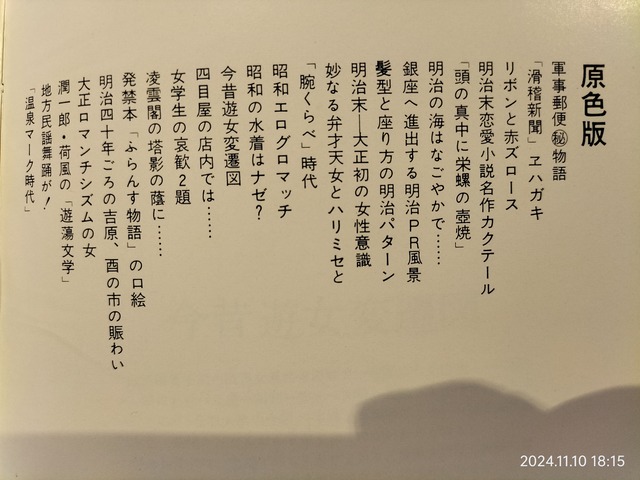 原色版
軍事郵便㊙物語
「滑稽新聞」ヱハガキ
リボンと赤ズロース
明治末恋愛小説名作カクテール
「頭の真中に栄螺の壺焼」
明治の海はなごやかで……
銀座へ進出する明治ＰＲ風景
髪型と座り方の明治パターン
明治末―大正初の女性意識
妙なる弁才天女とハリミセと
「腕くらべ」時代
昭和エログロマッチ
昭和の水着はナゼ？
今昔遊女変遷図
四目屋の店内では……
女学生の哀歓２題
凌雲閣の塔影の蔭に……
発禁本「ふらんす物語」の口絵
明治四十年ごろの吉原、酉の市の賑わい
大正ロマンチシズムの女
潤一郎・荷風の「遊蕩文学」
地方民謡舞踊が！
「温泉マーク時代」
2024.11.10 18:15